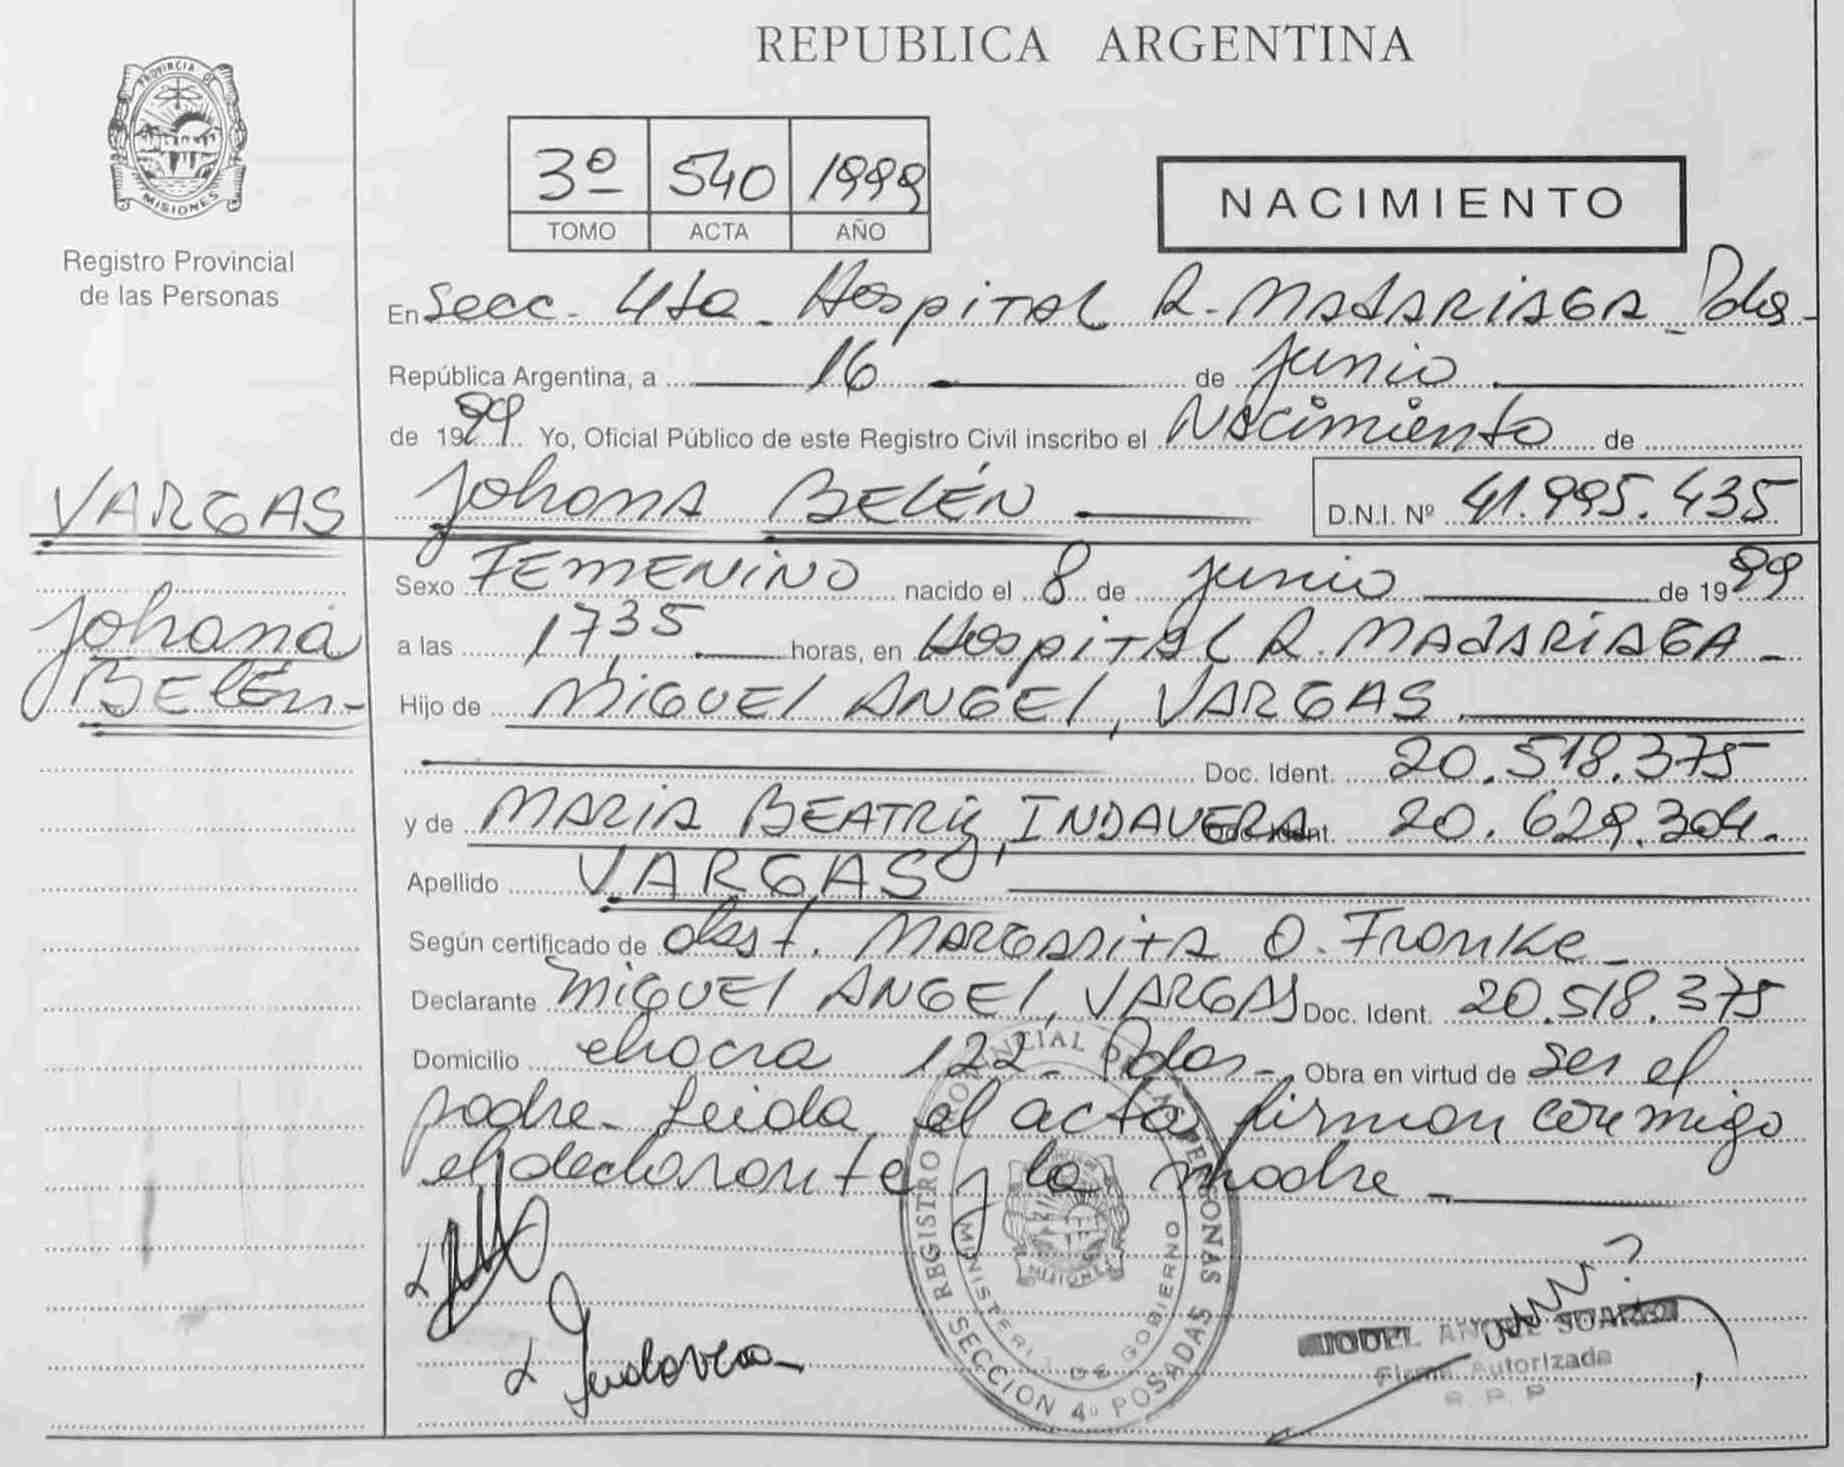 REPUBLICA ARGENTINA
PROVINCIA DE
MISIONES
Registro Provincial
de las Personas
3º 540 1999
TOMO ACTA AÑO
NACIMIENTO
En Secc. 4ta - Hospital R. MADARIAGA - Pdas -
República Argentina, a 16 de junio
de 1999 Yo, Oficial Público de este Registro Civil inscribo el Nacimiento de
VARGAS Johana BELÉN D.N.I. Nº 41.995.435
Johana
BELÉn-
Sexo FEMENINO nacido el 8 de junio de 1999
a las 17,35 horas, en Hospital R. MADARIAGA -
Hijo de MIGUEL ANGEL, VARGAS
Doc. Ident. 20.518.375
y de MARIA BEATRiz, INDAVERA Doc. Ident. 20.629.304.
Apellido VARGAS
Según certificado de obst. MARGARITA O. Fronke -
Declarante MIGUEL ANGEL, VARGAS Doc. Ident. 20.518.375
Domicilio chacra 122 - Pdas - Obra en virtud de ser el
padre - Leida el acta firman conmigo
el declarante y la madre -
Indavera
REGISTRO PROVINCIAL DE LAS PERSONAS
MINISTERIO DE GOBIERNO
MISIONES
SECCION 4º POSADAS
MIGUEL ANGEL SUAREZ
Firma Autorizada
R. P. P.